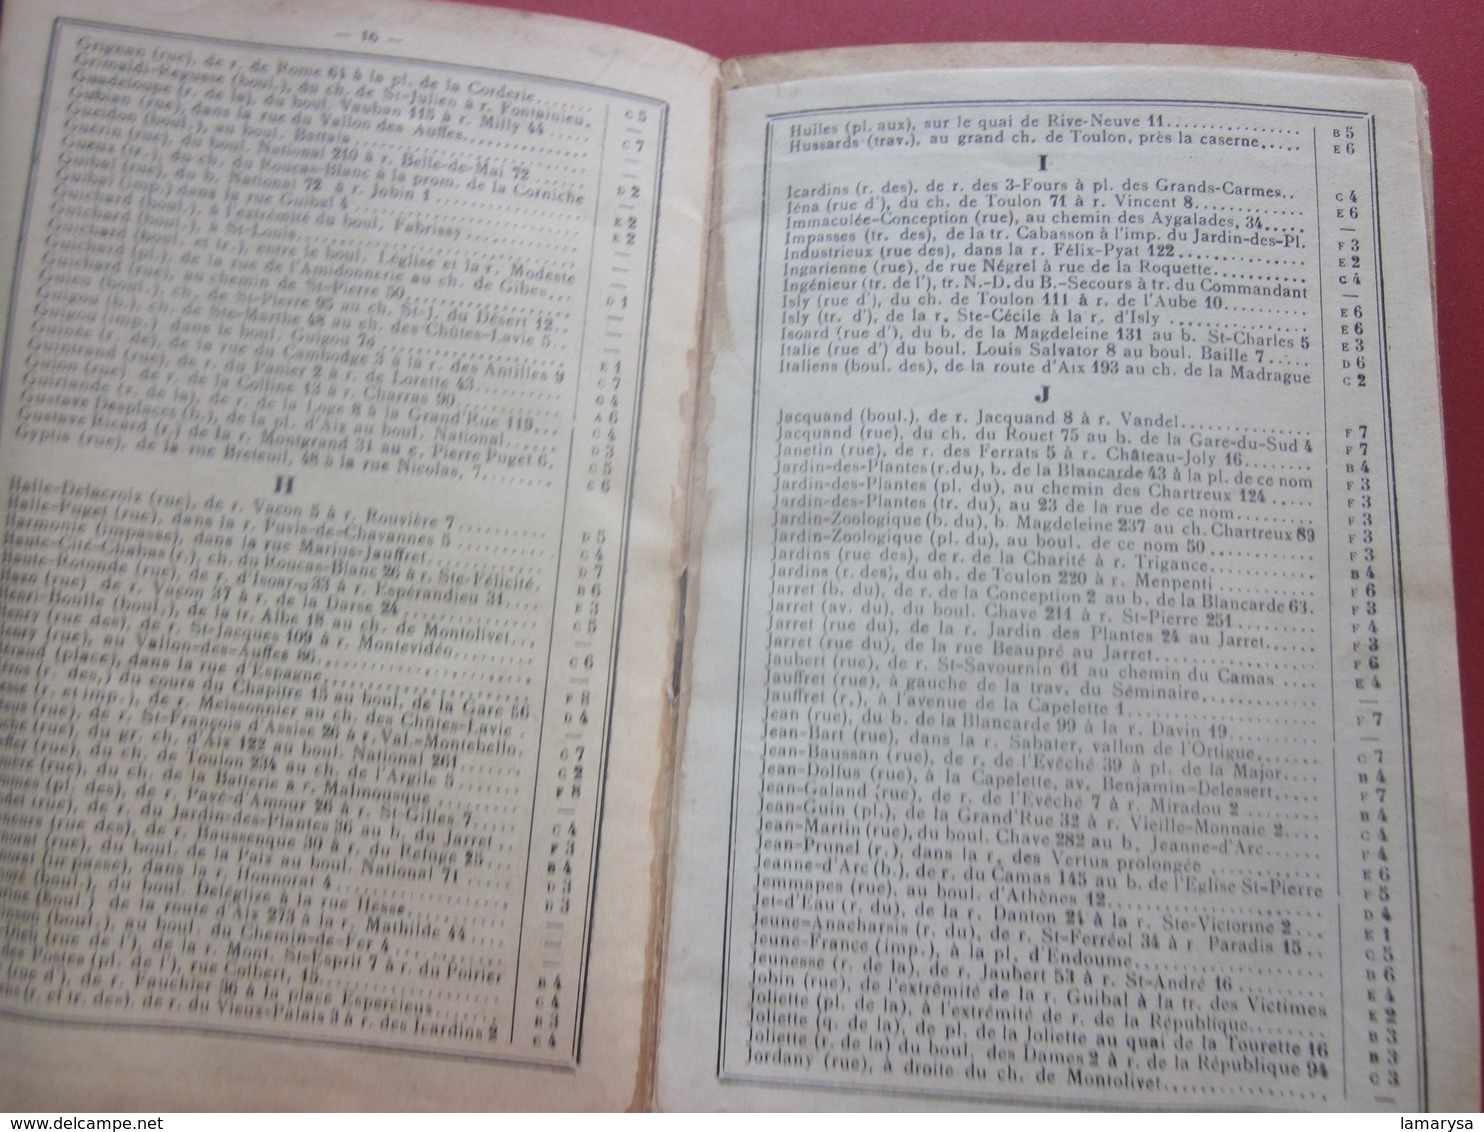 — 16 —
Grignan (rue), de r. de Rome 61 à la pl. de la Corderie...... C 5
Grimaldi-Regusse (boul.), du ch. de St-Julien à r. Fontainieu. —
Guadeloupe (r. de la), du boul. Vauban 115 à r. Milly 44 C 7
Gubian (rue), dans la rue du Vallon des Auffes
Gueidon (boul.), au boul. Battala
Guérin (rue), du boul. National 210 à r. Belle-de-Mai 72 D 2
Gueux (tr.), du ch. du Roucas-Blanc à la prom. de la Corniche
Guibal (rue), du b. National 72 à r. Jobin 1 E 2
Guibal (imp.) dans la rue Guibal 4 E 2
Guichard (boul.), à l'extrémité du boul. Fabrissy
Guichard (boul.), à St-Louis
Guichard (boul. et tr.), entre le boul. Léglise et la r. Modeste
Guichard (pl.), de la rue de l'Amidonnerie au ch. de Gibes
Guichard (rue), au chemin de St-Pierre 50 D 1
Guieu (boul.), ch. de St-Pierre 95 au ch. St-J. du Désert 12
Guigou (b.), ch. de Ste-Marthe 48 au ch. des Chûtes-Lavie 5
Guigou (imp.) dans le boul. Guigou 7a
Guinée (r. de), de la rue du Cambodge 3 à la r. des Antilles 9 E 1
Guintrand (rue), de r. du Panier 2 à r. de Lorette 43 C 7
Guion (rue), de la Colline 13 à r. Charras 90 C 4
Guirlande (r. de la), de r. de la Loge 8 à la Grand'Rue 119 A 6
Gustave Desplaces (b.), de la pl. d'Aix au boul. National C 4
Gustave Ricard (r.) de la r. Montgrand 31 au c. Pierre Puget 6. D 3
Gyptis (rue), de la rue Breteuil, 48 à la rue Nicolas, 7 C 5
C 6
H
Halle-Delacroix (rue), de r. Vacon 5 à r. Rouvière 7 D 5
Halle-Puget (rue), dans la r. Puvis-de-Chavannes 5 C 4
Harmonie (impasse), dans la rue Marius-Jauffret D 7
Haute-Cité-Chabas (r.), ch. du Roucas-Blanc 26 à r. Ste-Félicité. B 6
Haute-Rotonde (rue), de r. d'Isoard 33 à r. Espérandieu 31 E 3
Haxo (rue), de r. Vacon 37 à r. de la Darse 24 C 5
Henri-Boulle (boul.), de la tr. Albe 18 au ch. de Montolivet —
Henry (rue des), de r. St-Jacques 109 à r. Montevidéo C 6
Henry (rue), au Vallon-des-Auffes 86
(place), dans la rue d'Espagne F 8
(r. des,) du cours du Chapitre 15 au boul. de la Gare 56 D 4
(r. et imp.), de r. Meissonnier au ch. des Chûtes-Lavie
(rue), de r. St-François d'Assise 26 à r. Val.-Montebello. C 7
(rue), du gr. ch. d'Aix 122 au boul. National 261 C 2
(rue), du ch. de Toulon 234 au ch. de l'Argile 5 F 8
(rue), du ch. de la Batterie à r. Malmousque
(pl. des), de r. Pavé-d'Amour 26 à r. St-Gilles 7 C 4
(rue), du Jardin-des-Plantes 36 au b. du Jarret F 3
(rue des), de r. Baussenque 30 à r. du Refuge 25 B 4
(rue), du boul. de la Paix au boul. National 71 D 3
(impasse), dans la r. Honnorat 4 D 3
(boul.), du boul. Deléglize à la rue Hesse
(boul.) de la route d'Aix 273 à la r. Mathilde 44
(boul.), au boul. du Chemin-de-Fer 4
(rue de l'), de la r. Mont. St-Esprit 7 à r. du Poirier B 4
des Postes (pl. de l'), rue Colbert, 15 C 4
(rue d'), de r. Fauchier 36 à la place Espercieux B 3
(r. et tr. des), de r. du Vieux-Palais 3 à r. des Icardins 2 C 4
Huiles (pl. aux), sur le quai de Rive-Neuve 11 B 5
Hussards (trav.), au grand ch. de Toulon, près la caserne E 6
I
Icardins (r. des), de r. des 3-Fours à pl. des Grands-Carmes.. C 4
Iéna (rue d'), du ch. de Toulon 71 à r. Vincent 8 E 6
Immaculée-Conception (rue), au chemin des Aygalades, 34 —
Impasses (tr. des), de la tr. Cabasson à l'imp. du Jardin-des-Pl. F 3
Industrieux (rue des), dans la r. Félix-Pyat 122 E 2
Ingarienne (rue), de rue Négrel à rue de la Roquette C 4
Ingénieur (tr. de l'), tr. N.-D. du B.-Secours à tr. du Commandant —
Isly (rue d'), du ch. de Toulon 111 à r. de l'Aube 10 E 6
Isly (tr. d'), de la r. Ste-Cécile à la r. d'Isly E 6
Isoard (rue d'), du b. de la Magdeleine 131 au b. St-Charles 5 E 3
Italie (rue d') du boul. Louis Salvator 8 au boul. Baille 7 D 6
Italiens (boul. des), de la route d'Aix 193 au ch. de la Madrague C 2
J
Jacquand (boul.), de r. Jacquand 8 à r. Vandel F 7
Jacquand (rue), du ch. du Rouet 75 au b. de la Gare-du-Sud 4 F 7
Janetin (rue), de r. des Ferrats 5 à r. Château-Joly 16 B 4
Jardin-des-Plantes (r.du), b. de la Blancarde 43 à la pl. de ce nom F 3
Jardin-des-Plantes (pl. du), au chemin des Chartreux 124 F 3
Jardin-des-Plantes (tr. du), au 23 de la rue de ce nom F 3
Jardin-Zoologique (b. du), b. Magdeleine 237 au ch. Chartreux 89 F 3
Jardin-Zoologique (pl. du), au boul. de ce nom 50 F 3
Jardins (rue des), de r. de la Charité à r. Trigance B 4
Jardins (r. des), du ch. de Toulon 220 à r. Menpenti F 6
Jarret (b. du), de r. de la Conception 2 au b. de la Blancarde 63. F 3
Jarret (av. du), du boul. Chave 211 à r. St-Pierre 251 F 4
Jarret (rue du), de la r. Jardin des Plantes 24 au Jarret F 3
Jarret (rue du), de la rue Beaupré au Jarret F 6
Jaubert (rue), de r. St-Savournin 61 au chemin du Camas E 4
Jauffret (rue), à gauche de la trav. du Séminaire —
Jauffret (r.), à l'avenue de la Capelette 1 F 7
Jean (rue), du b. de la Blancarde 99 à la r. Davin 19 —
Jean-Bart (rue), dans la r. Sabater, vallon de l'Ortigue C 7
Jean-Baussan (rue), de r. de l'Evêché 39 à pl. de la Major B 4
Jean-Dolfus (rue), à la Capelette, av. Benjamin-Delessert F 7
Jean-Galand (rue), de r. de l'Evêché 7 à r. Miradou 2 B 4
Jean-Guin (pl.), de la Grand'Rue 32 à r. Vieille-Monnaie 2 C 4
Jean-Martin (rue), du boul. Chave 282 au b. Jeanne-d'Arc F 4
Jean-Prunel (r.), dans la r. des Vertus prolongée E 6
Jeanne-d'Arc (b.), de r. du Camas 145 au b. de l'Eglise St-Pierre F 5
Jemmapes (rue), au boul. d'Athènes 12 D 4
Jet-d'Eau (r. du), de la r. Danton 21 à la r. Ste-Victorine 2 E 1
Jeune-Anacharsis (r. du), de r. St-Ferréol 34 à r. Paradis 15 C 5
Jeune-France (imp.), à la pl. d'Endoume B 6
Jeunesse (r. de la), de r. Jaubert 53 à r. St-André 16 E 4
Jobin (rue), de l'extrémité de la r. Guibal à la tr. des Victimes E 2
Joliette (pl. de la), à l'extrémité de r. de la République B 3
Joliette (q. de la), de pl. de la Joliette au quai de la Tourette 16 B 3
Joliette (r. de la) du boul. des Dames 2 à r. de la République 94 C 3
Jordany (rue), à droite du ch. de Montolivet —
lamarysa